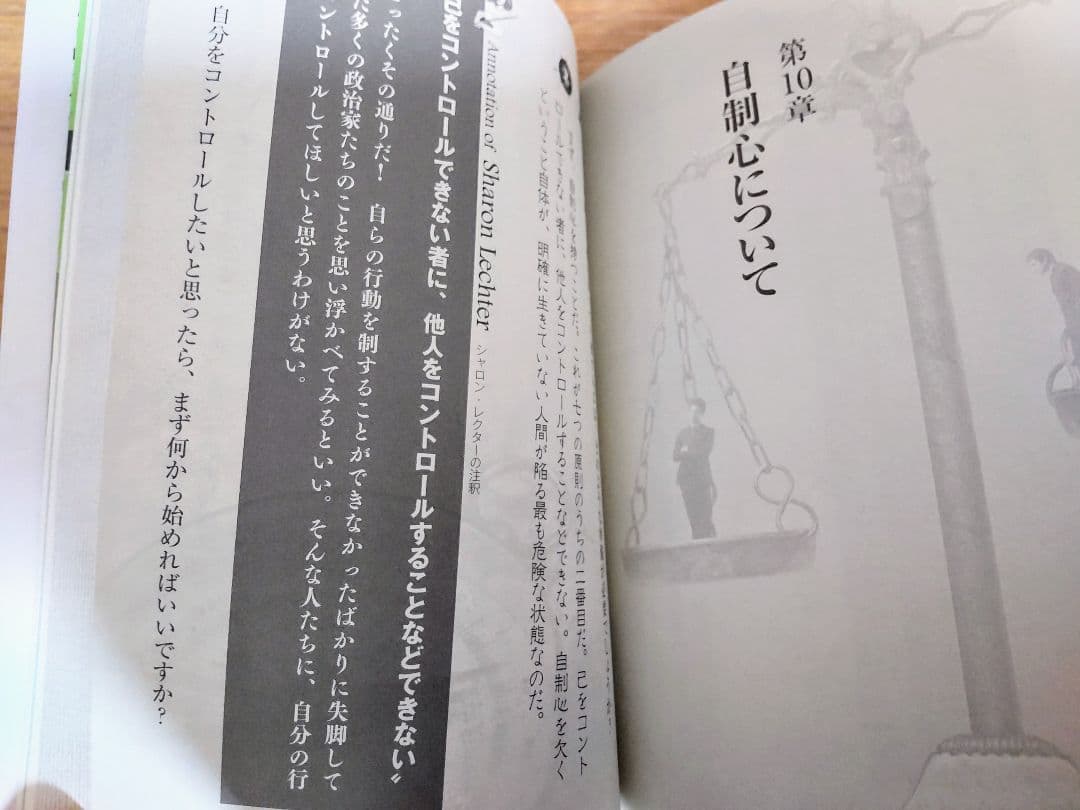 第10章
自制心について
を持つことだ。これが七つの原則のうちの二番目だ。己をコント
ロールできない者に、他人をコントロールすることなどできない。自制心を欠く
ということ自体が、明確に生きていない人間が陥る最も危険な状態なのだ。
Annotation of Sharon Lechter シャロン・レクターの注釈
己をコントロールできない者に、他人をコントロールすることなどできない〟
ったくその通りだ！　自らの行動を制することができなかったばかりに失脚して
た多くの政治家たちのことを思い浮かべてみるといい。そんな人たちに、自分の行
ントロールしてほしいと思うわけがない。
自分をコントロールしたいと思ったら、まず何から始めればいいですか？